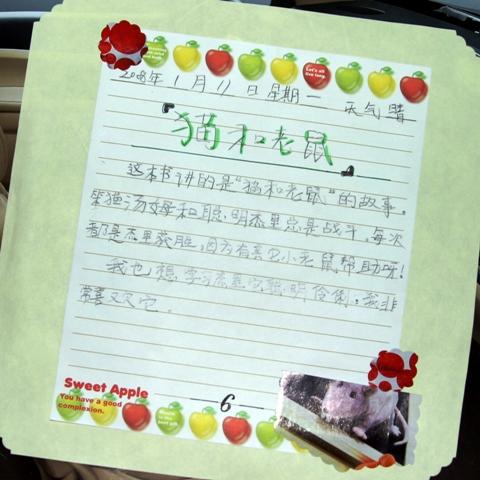 Let's all live long.
2008年1月11日星期一 天气晴
『猫和老鼠』
这本书讲的是“猫和老鼠”的故事。
笨猫汤姆和聪明杰里总是战斗,每次
都是杰里获胜,因为有其它小老鼠帮助呀!
我也想学习杰里聪明伶俐,我非
常喜又欠它。
Sweet Apple
You have a good
complexion.
6